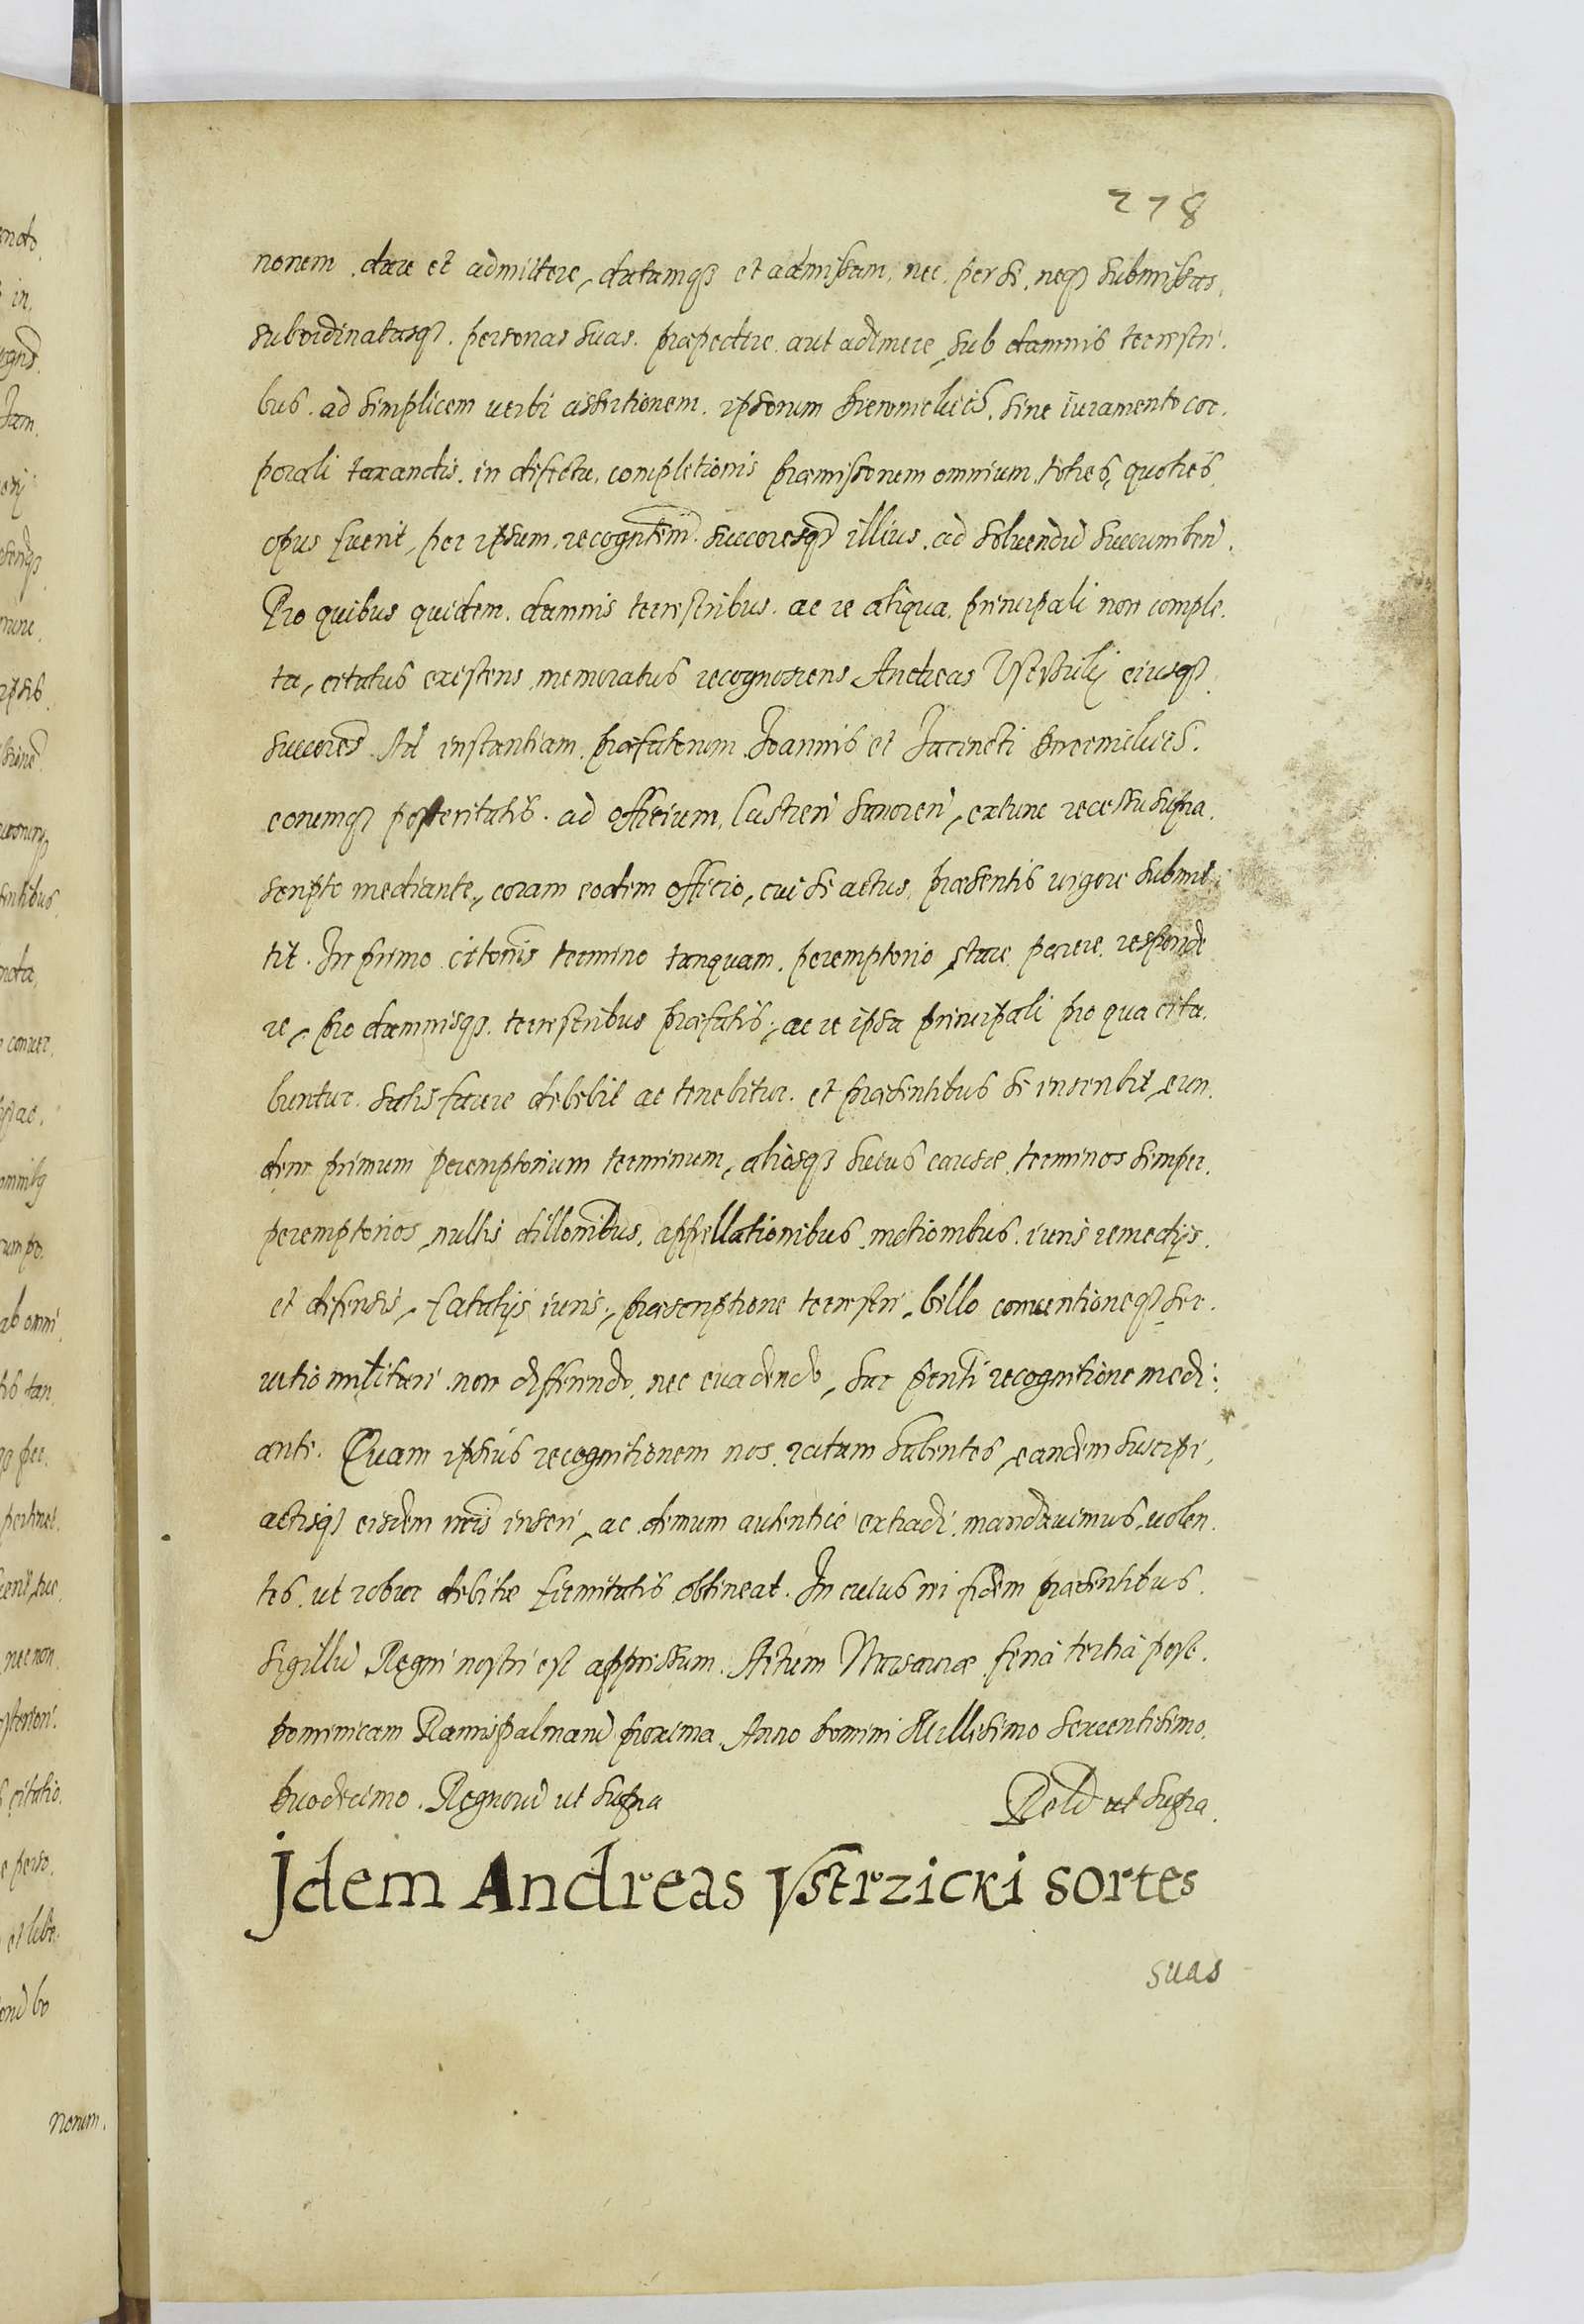 278
nonem dare et admittere, datamq3 et admissam, nec per se, neq3 submissas
subordinatasq3 personas suas praepedire aut adimere, sub damnis terrestri
bus ad simplicem verbi assertionem ipsorum sine iuramento cor
porali taxandis in defectu completionis praemissorum omnium, toties, quoties
opus fuerit, per ipsum recogntem successq3 illius ad solvendu succumbend.
Pro quibus quidem damnis terrestribus ac re aliqua principali non comple
ta, citatus existens memoratus recognoscens Andreas eiusq3
success Ad instantiam praefatorum Joannis et Jacincti
eorumq3 posteritatis ad officium Castren Sanocen, extunc recessu supra
scripto mediante, coram eodem officio, cui se actus praesentis vigore submit
tit. In primo citonis termino tanquam peremptorio stare parere responde
re, pro damnisq3 terrestribus praefatis, ac re ipsa principali pro qua cita
buntur satisfacere debebit ac tenebitur. et praesentibus se inscribit, eun
dem primum peremptorium terminum, aliosq3 suius causae terminos semper
peremptorios nullis dillonibus, appellationibus motionibus iuris remedijs
et defensis, fatalijs iuris, praescriptione terrestri, bello conventioneq3 ser
vitio militari non differendo, nec evadendo, suae pnti recognitione medi
ante. Quam ipsius recognitionem nos ratam habentes, eandem suscipi,
actisq3 eisdem nris inseri, ac demum autentice extradi mandavimus, volen
tes ut robur debitae firmitatis obtineat. In cuius rei fidem praesentibus
sigillu Regni nostri est appressum. Actum Warsaviae feria tertia post
Dominicam Ramispalmaru proxima Anno Domini Millesimo Sexcentesimo
Duodecimo. Regnoru ut supra Relo ut supra
Jdem Andreas Vstrzicki sortes
suas